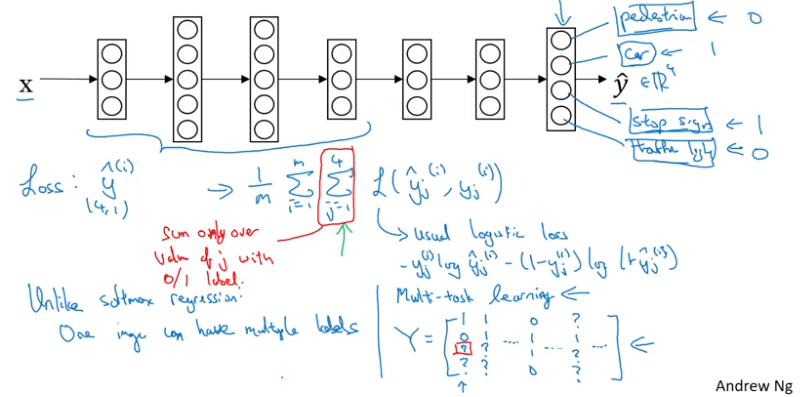 pedestrian ← 0
car ← 1
x
ŷ ∈ ℝ⁴
stop sign ← 1
traffic light ← 0
Loss: ŷ^(i) → 1/m Σ_{i=1}^{m} Σ_{j=1}^{4} L(ŷ_j^(i), y_j^(i))
(4,1)
Sum only over
value of j with
0/1 label.
usual logistic loss
- y_j^(i) log ŷ_j^(i) - (1-y_j^(i)) log (1-ŷ_j^(i))
Unlike softmax regression:
One image can have multiple labels
Multi-task learning ←
Y = [
1 1 0 ?
0 1 1 1
? ? ... 1 ... ? ...
? ? 0 ?
] ←
Andrew Ng